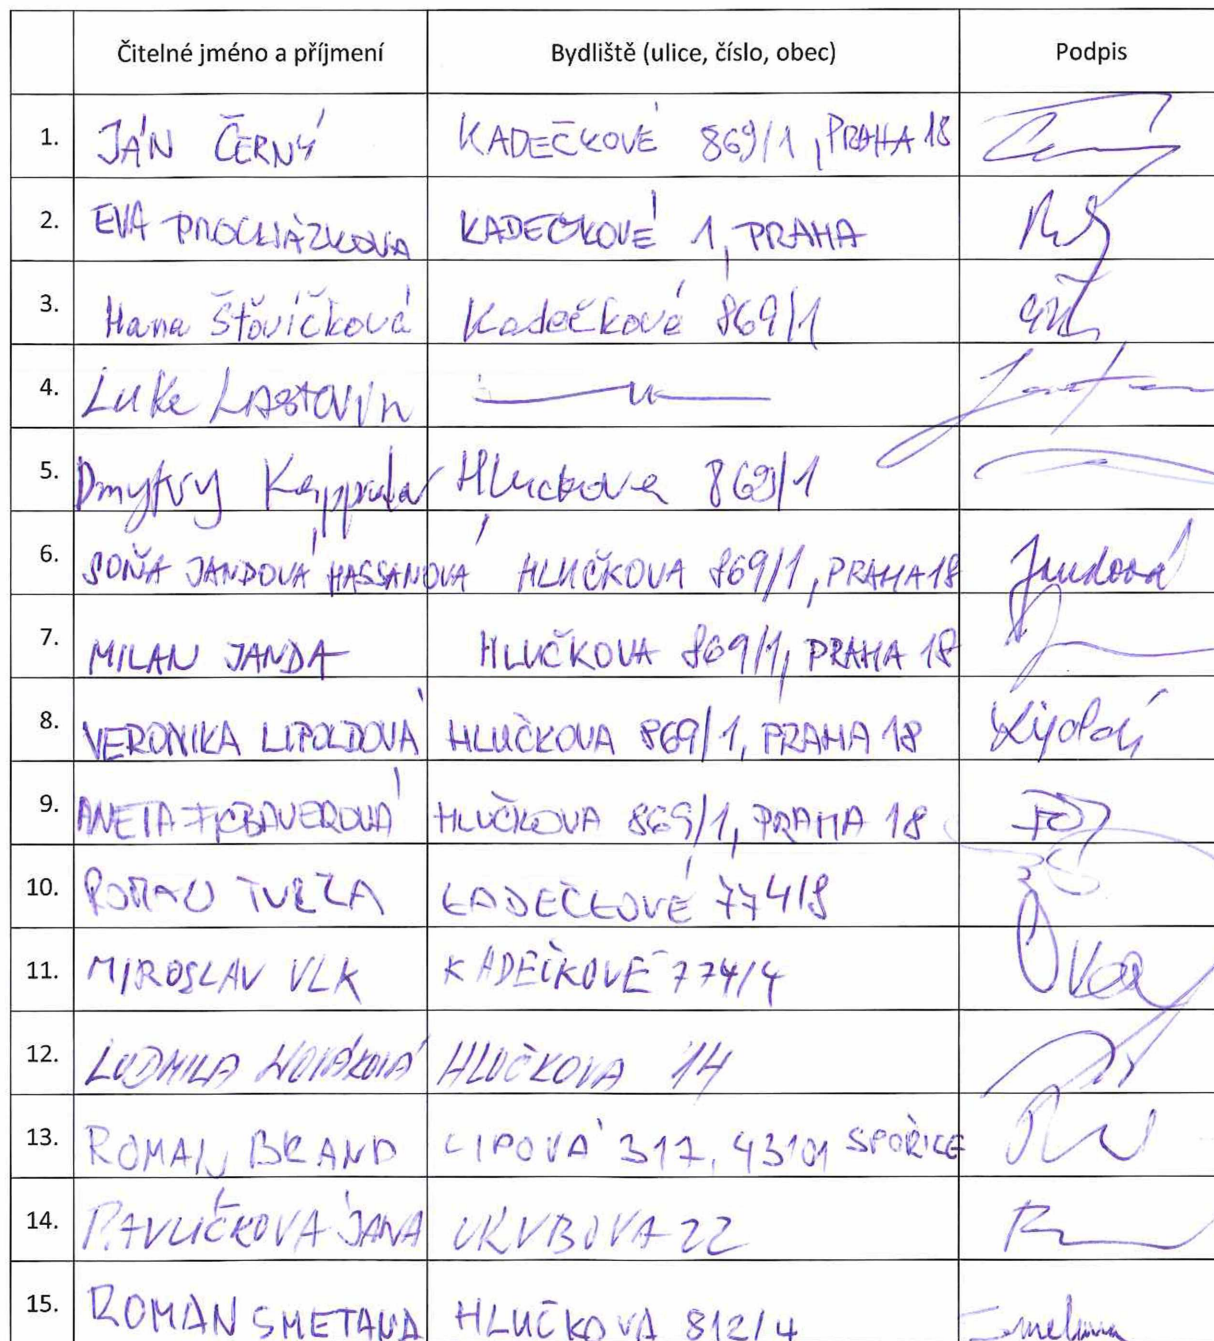 Čitelné jméno a příjmení Bydliště (ulice, číslo, obec) Podpis
1. JÁN ČERNÝ KADEČKOVÉ 869/1, PRAHA 18
2. EVA PROCHÁZKOVA KADEČKOVÉ 1, PRAHA
3. Hana Šťovíčková Kadečkové 869/1
4. Luke
5. Dmytry Hluckova 869/1
6. SOŇA JANDOVÁ HASSANOVÁ HLUČKOVA 869/1, PRAHA 18 Jandová
7. MILAN JANDA HLUČKOVA 869/1, PRAHA 18
8. VERONIKA LIPOLDOVÁ HLUČKOVA 869/1, PRAHA 18
9. ANETA HLUČKOVA 869/1, PRAHA 18
10. ROMAN KADEČKOVÉ 774/8
11. MIROSLAV VLK KADEČKOVÉ 774/4
12. LUDMILA NOVÁKOVÁ HLUČKOVA 14
13. ROMAN BRAND LIPOVÁ 317, 43101 SPOŘICE
14. PAVLIČKOVA JANA 22
15. ROMAN SMETANA HLUČKOVA 812/4 Smetana